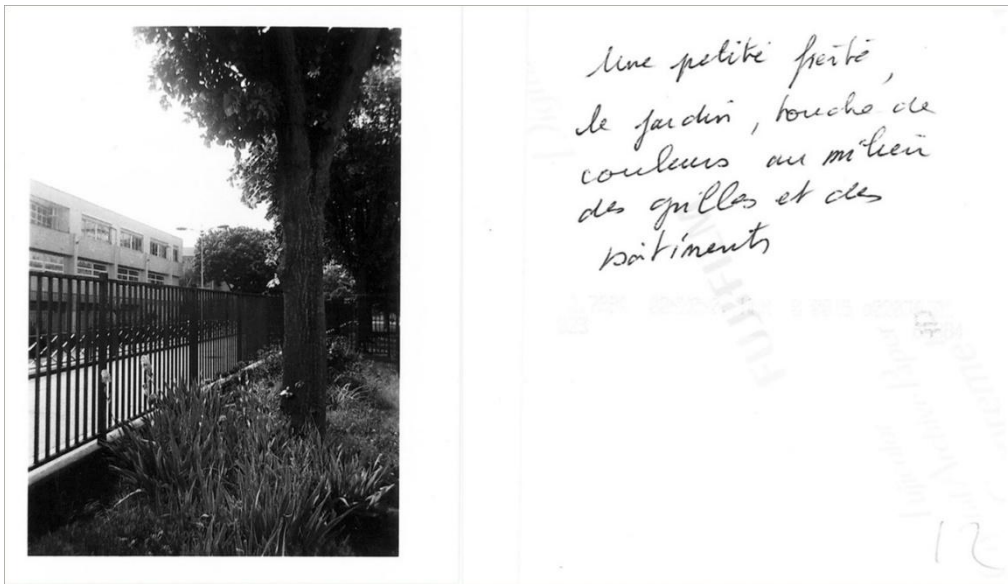 Une petite fierté,
le jardin, touche de
couleurs au milieu
des grilles et des
bâtiments
FUJIFILM
12